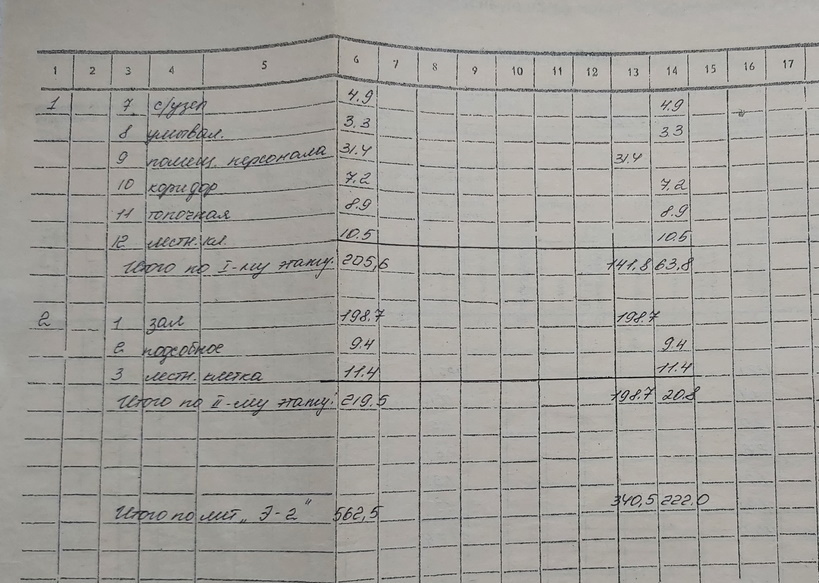 1 2 3 4 5 6 7 8 9 10 11 12 13 14 15 16 17
1 7 с/узел 4.9 4.9
8 умывал. 3.3 3.3
9 помещ. персонала 31.4 31.4
10 коридор 7.2 7.2
11 топочная 8.9 8.9
12 лестн. кл. 10.5 10.5
Итого по I-му этажу: 205,6 141,8 63,8
2 1 зал 198.7 198.7
2 подсобное 9.4 9.4
3 лестн. клетка 11.4 11.4
Итого по II-му этажу: 219.5 198.7 20.8
Итого по лит „Э-2" 562,5 340,5 222.0